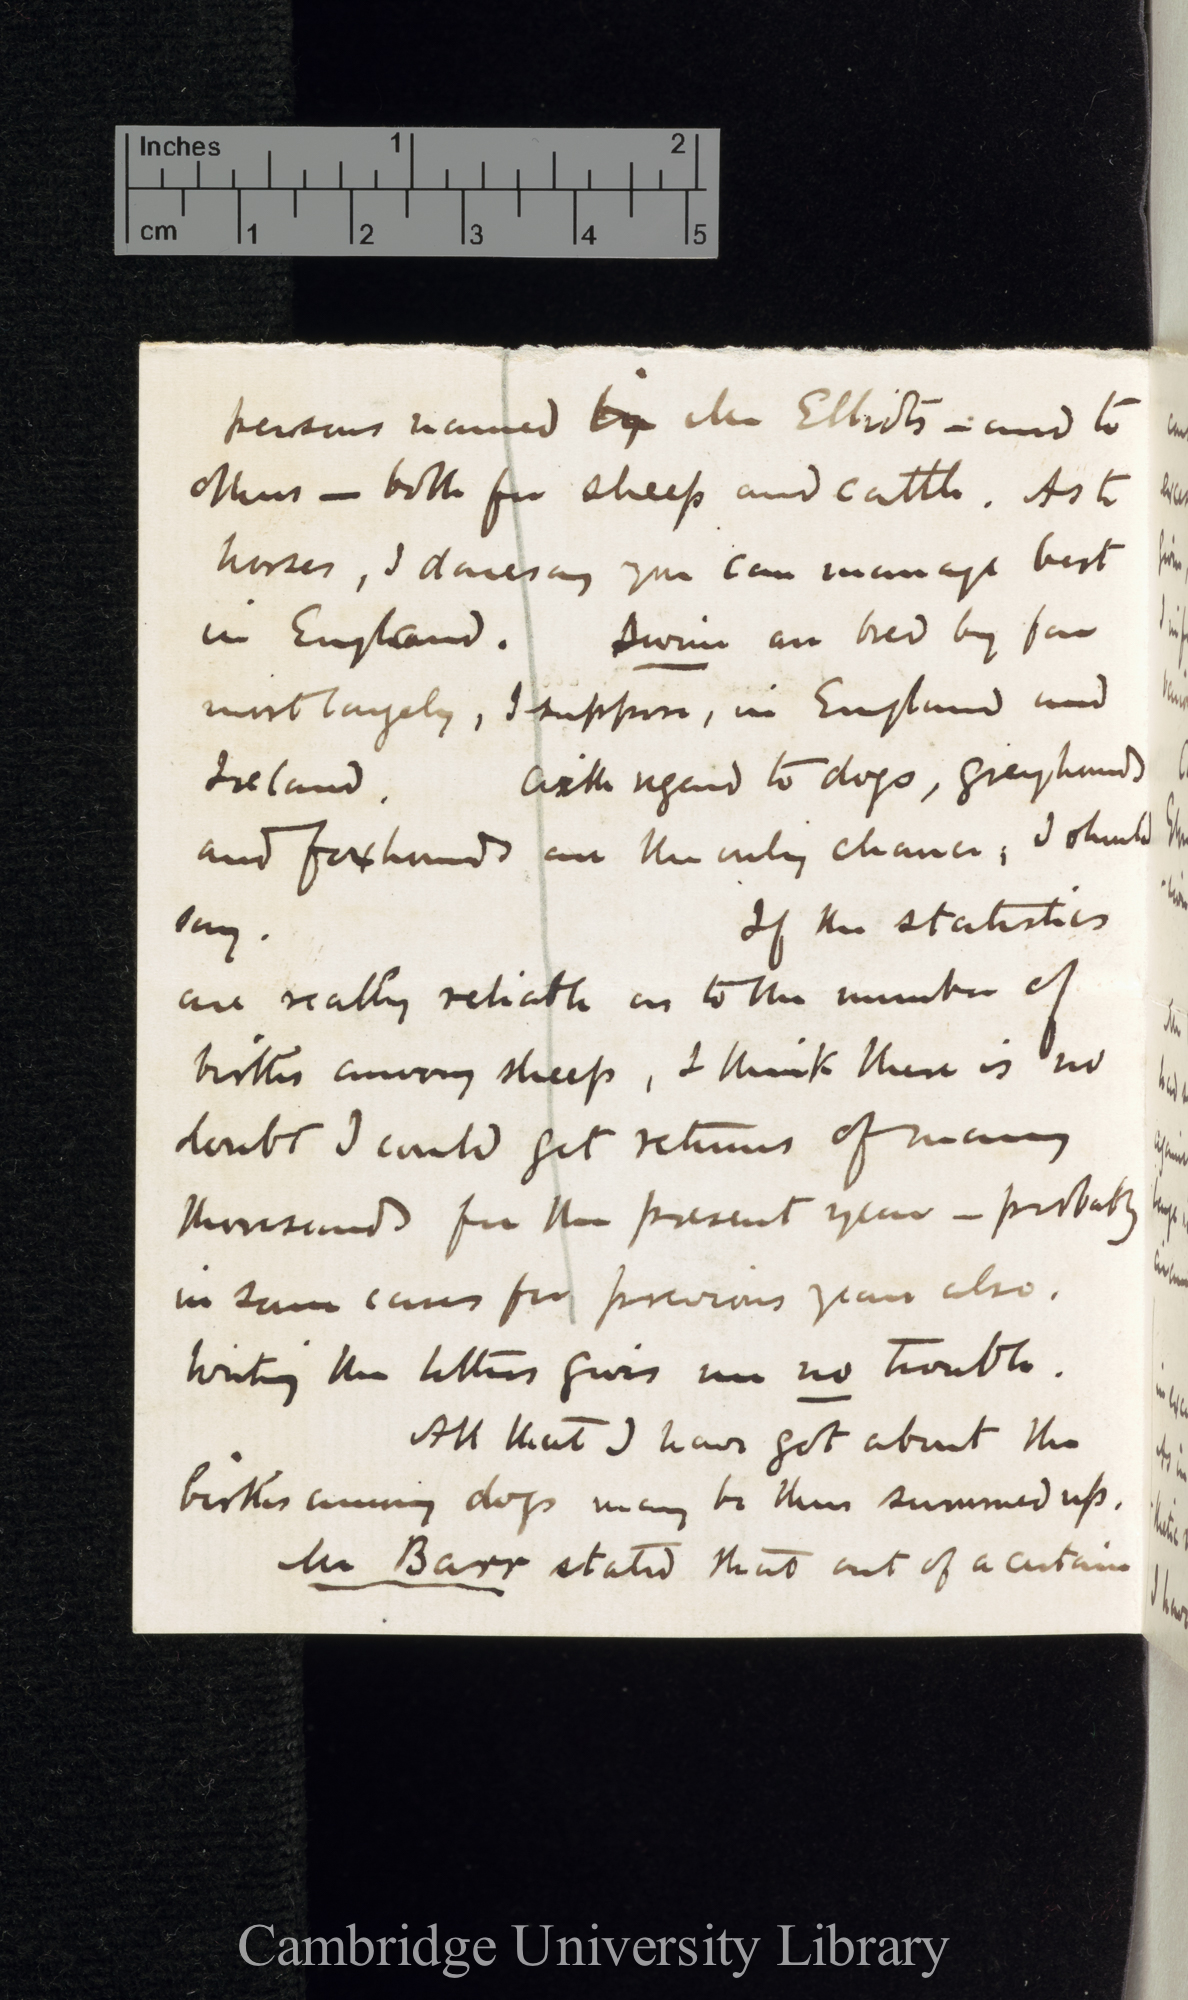 Inches 1 2
cm 1 2 3 4 5
persons named by Mr Elliots — and to
others — both for sheep and cattle. As to
horses, I daresay you can manage best
in England. Swine are bred by far
most largely, I suppose, in England and
Ireland. With regard to dogs, greyhounds
and foxhounds are the only chance, I should
say. If the statistics
are really reliable as to the number of
births among sheep, I think there is no
doubt I could get returns of many
thousands for the present year — probably
in some cases for previous years also.
Writing the letters gives me no trouble.
All that I have got about the
births among dogs may be thus summed up.
Mr Barr stated that out of a certain
Cambridge University Library